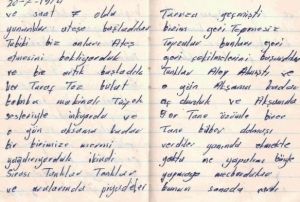 20-7-1974
ve saat 7 oldu
yunanlılar ateşe başladılar
Tabiki biz onların Ateş
etmesini bekliyorduk
ve biz artık başladık
Her Taraf Toz bulut
bomba makineli Tüfek
sesleriyle inliyordu ve
o gün akşama kadar
bir birimize mermi
yağdırıyorduk ikindi
Sırası Tanklar Tanklar
ve aralarında piyadeler
Taarruza geçmişti
bizim geri Tepmesiz
Topcular bunları geri
geri çekilmelerini
Tanklar Alev Almıştı ve
o gün Akşama kadar
aç durduk ve Akşamda
8 er Tane üzümle birer
Tane biber dolması
verdiler yanında ekmekte
yoktu ne yapalım böyle
yaşamaya mecburduk
bunun sonada vardı